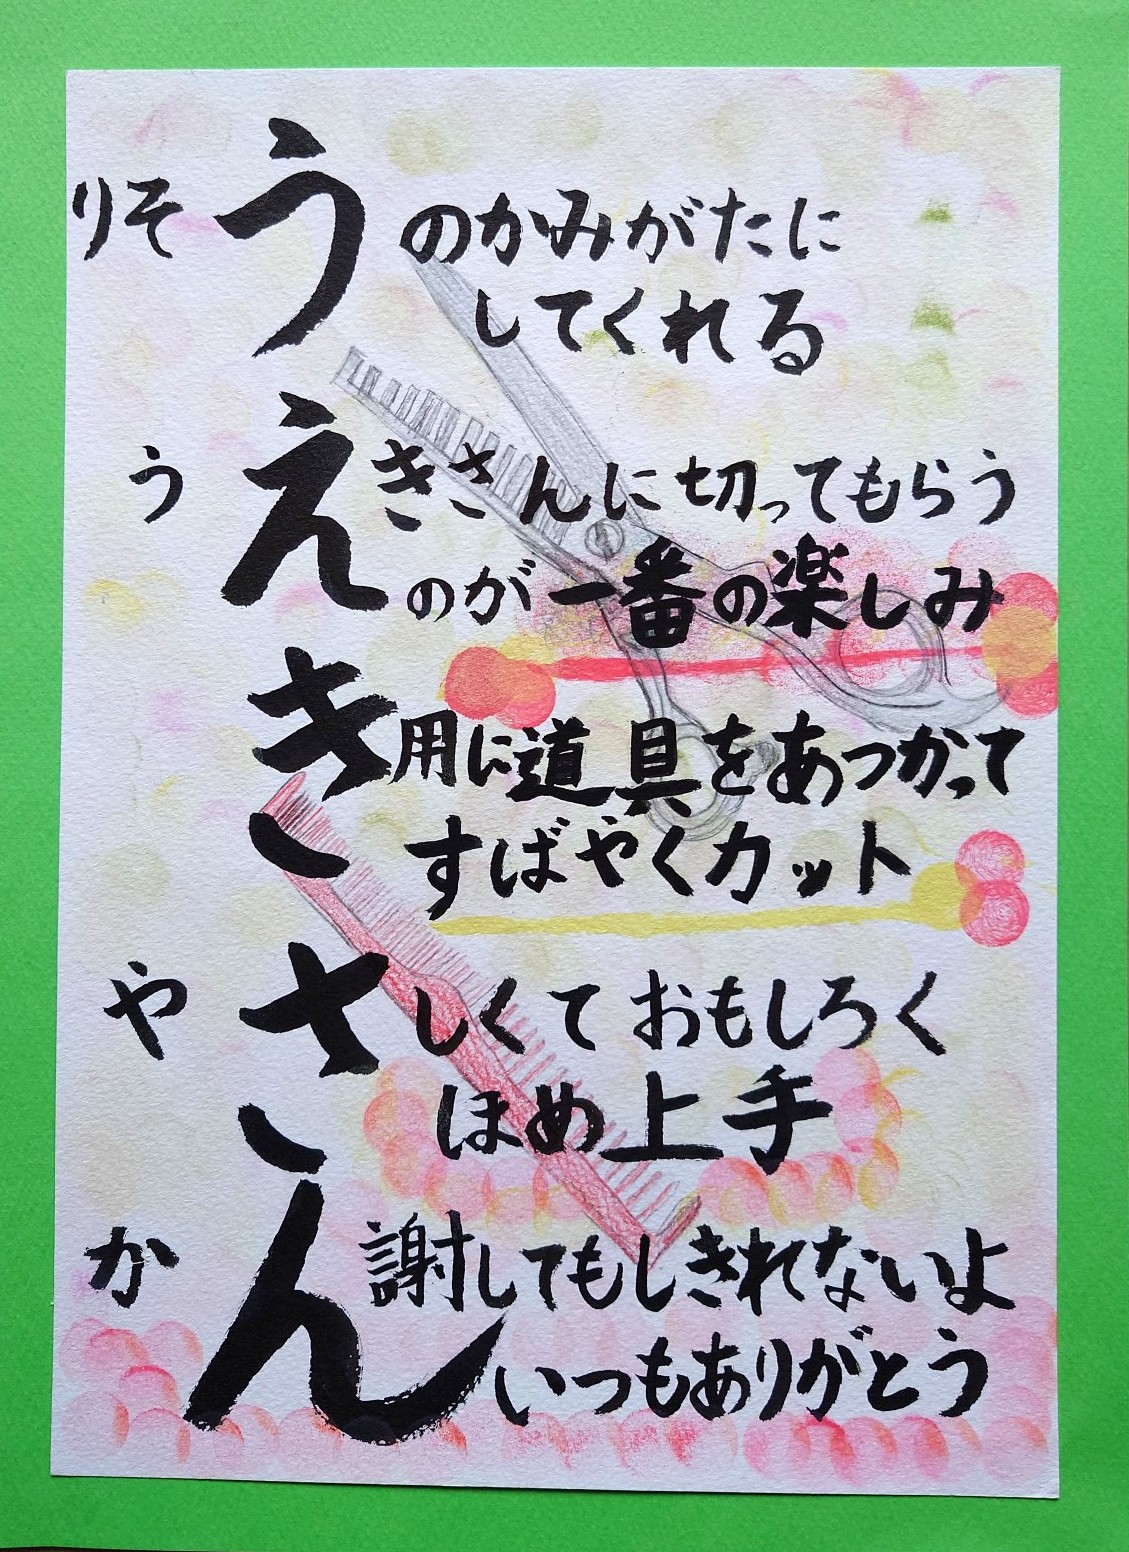 りそうのかみがたに
してくれる
うえきさんに切ってもらう
のが一番の楽しみ
き用に道具をあつかって
すばやくカット
やさしくておもしろく
ほめ上手
かん謝してもしきれないよ
いつもありがとう